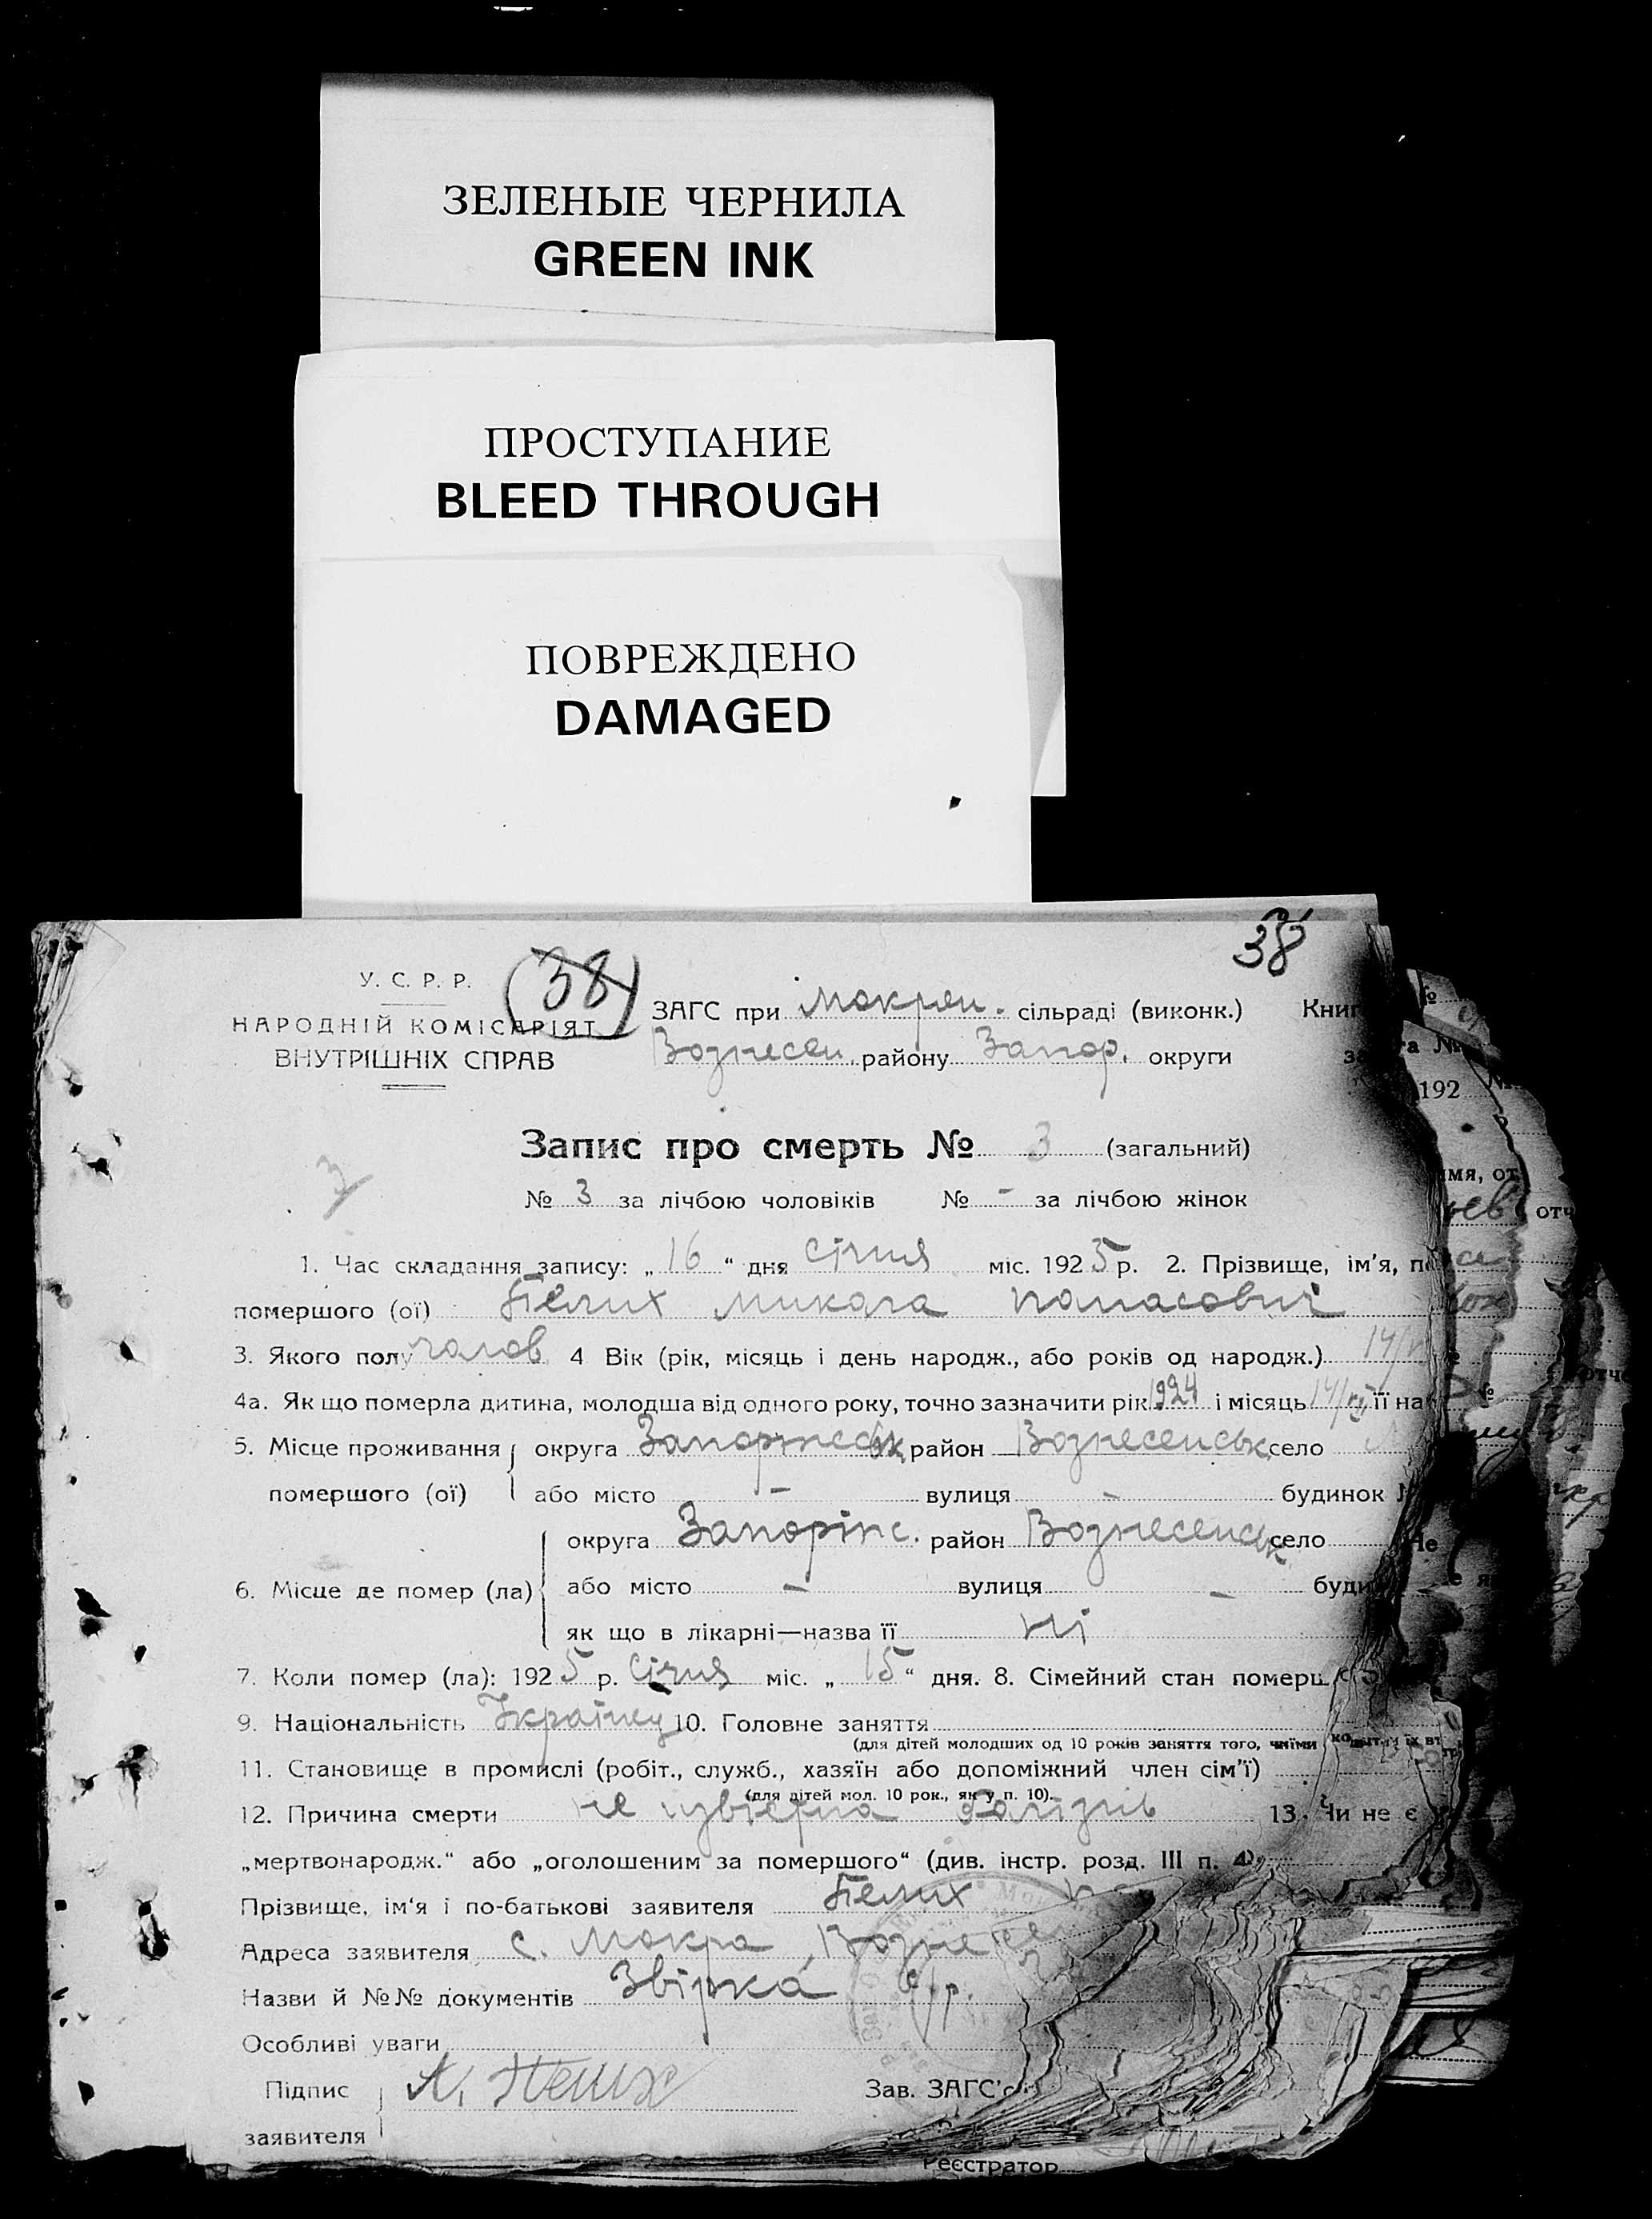 ЗЕЛЕНЫЕ ЧЕРНИЛА
GREEN INK
ПРОСТУПАНИЕ
BLEED THROUGH
ПОВРЕЖДЕНО
DAMAGED
38
У. С. Р. Р. 38
НАРОДНІЙ КОМІСАРІЯТ
ВНУТРІШНІХ СПРАВ
ЗАГС при Мокрян. сільраді (виконк.) Книг
Вознесен. району Запор. округи за
Запис про смерть № 3 (загальний)
3
№ 3 за лічбою чоловіків № - за лічбою жінок
1. Час складання запису: „ 16 “ дня січня міс. 1925 р. 2. Прізвище, ім'я, по
помершого (ої) Белих Микола Панасович
3. Якого полу чолов 4 Вік (рік, місяць і день народж., або років од народж.)
4а. Як що померла дитина, молодша від одного року, точно зазначити рік 1924 і місяць її на
5. Місце проживання округа район Вознесенськ село
помершого (ої) або місто - вулиця - будинок
округа Запоріж. район Вознесенськ село
6. Місце де помер (ла) або місто - вулиця - буди
як що в лікарні—назва її ні
7. Коли помер (ла): 1925 р. Січня міс. „ 15 “ дня. 8. Сімейний стан померш
9. Національність 10. Головне заняття
(для дітей молодших од 10 років заняття того, чиїми
11. Становище в промислі (робіт., служб., хазяїн або допоміжний член сім'ї)
(для дітей мол. 10 рок., як у п. 10).
12. Причина смерти не 13. Чи не є
„мертвонародж.“ або „оголошеним за помершого“ (див. інстр. розд. III п. 4)
Прізвище, ім'я і по-батькові заявителя Белих
Адреса заявителя с. Мокра
Назви й №№ документів Звірка
Особливі уваги
Підпис Зав. ЗАГС'о
заявителя
Реєстратор
192